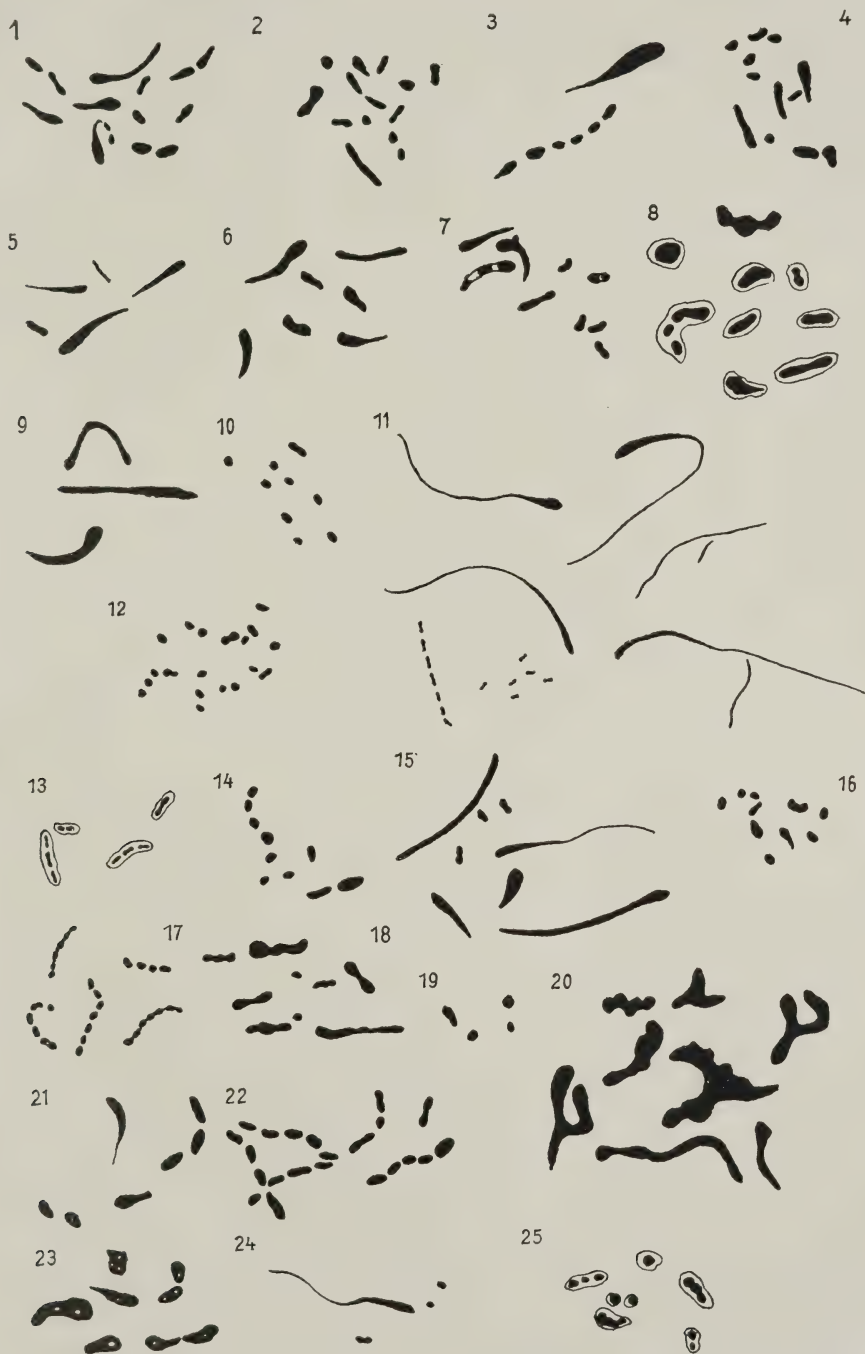 1 2 3 4
5 6 7 8
9 10 11
12
13 14 15 16
17 18 19 20
21 22
23 24 25